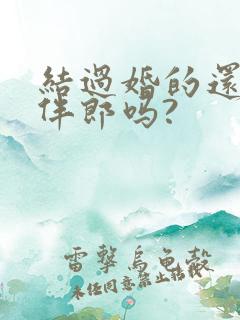 結過婚的還
伴郎吗?
雷擊烏龜殼
未经同意禁止转载